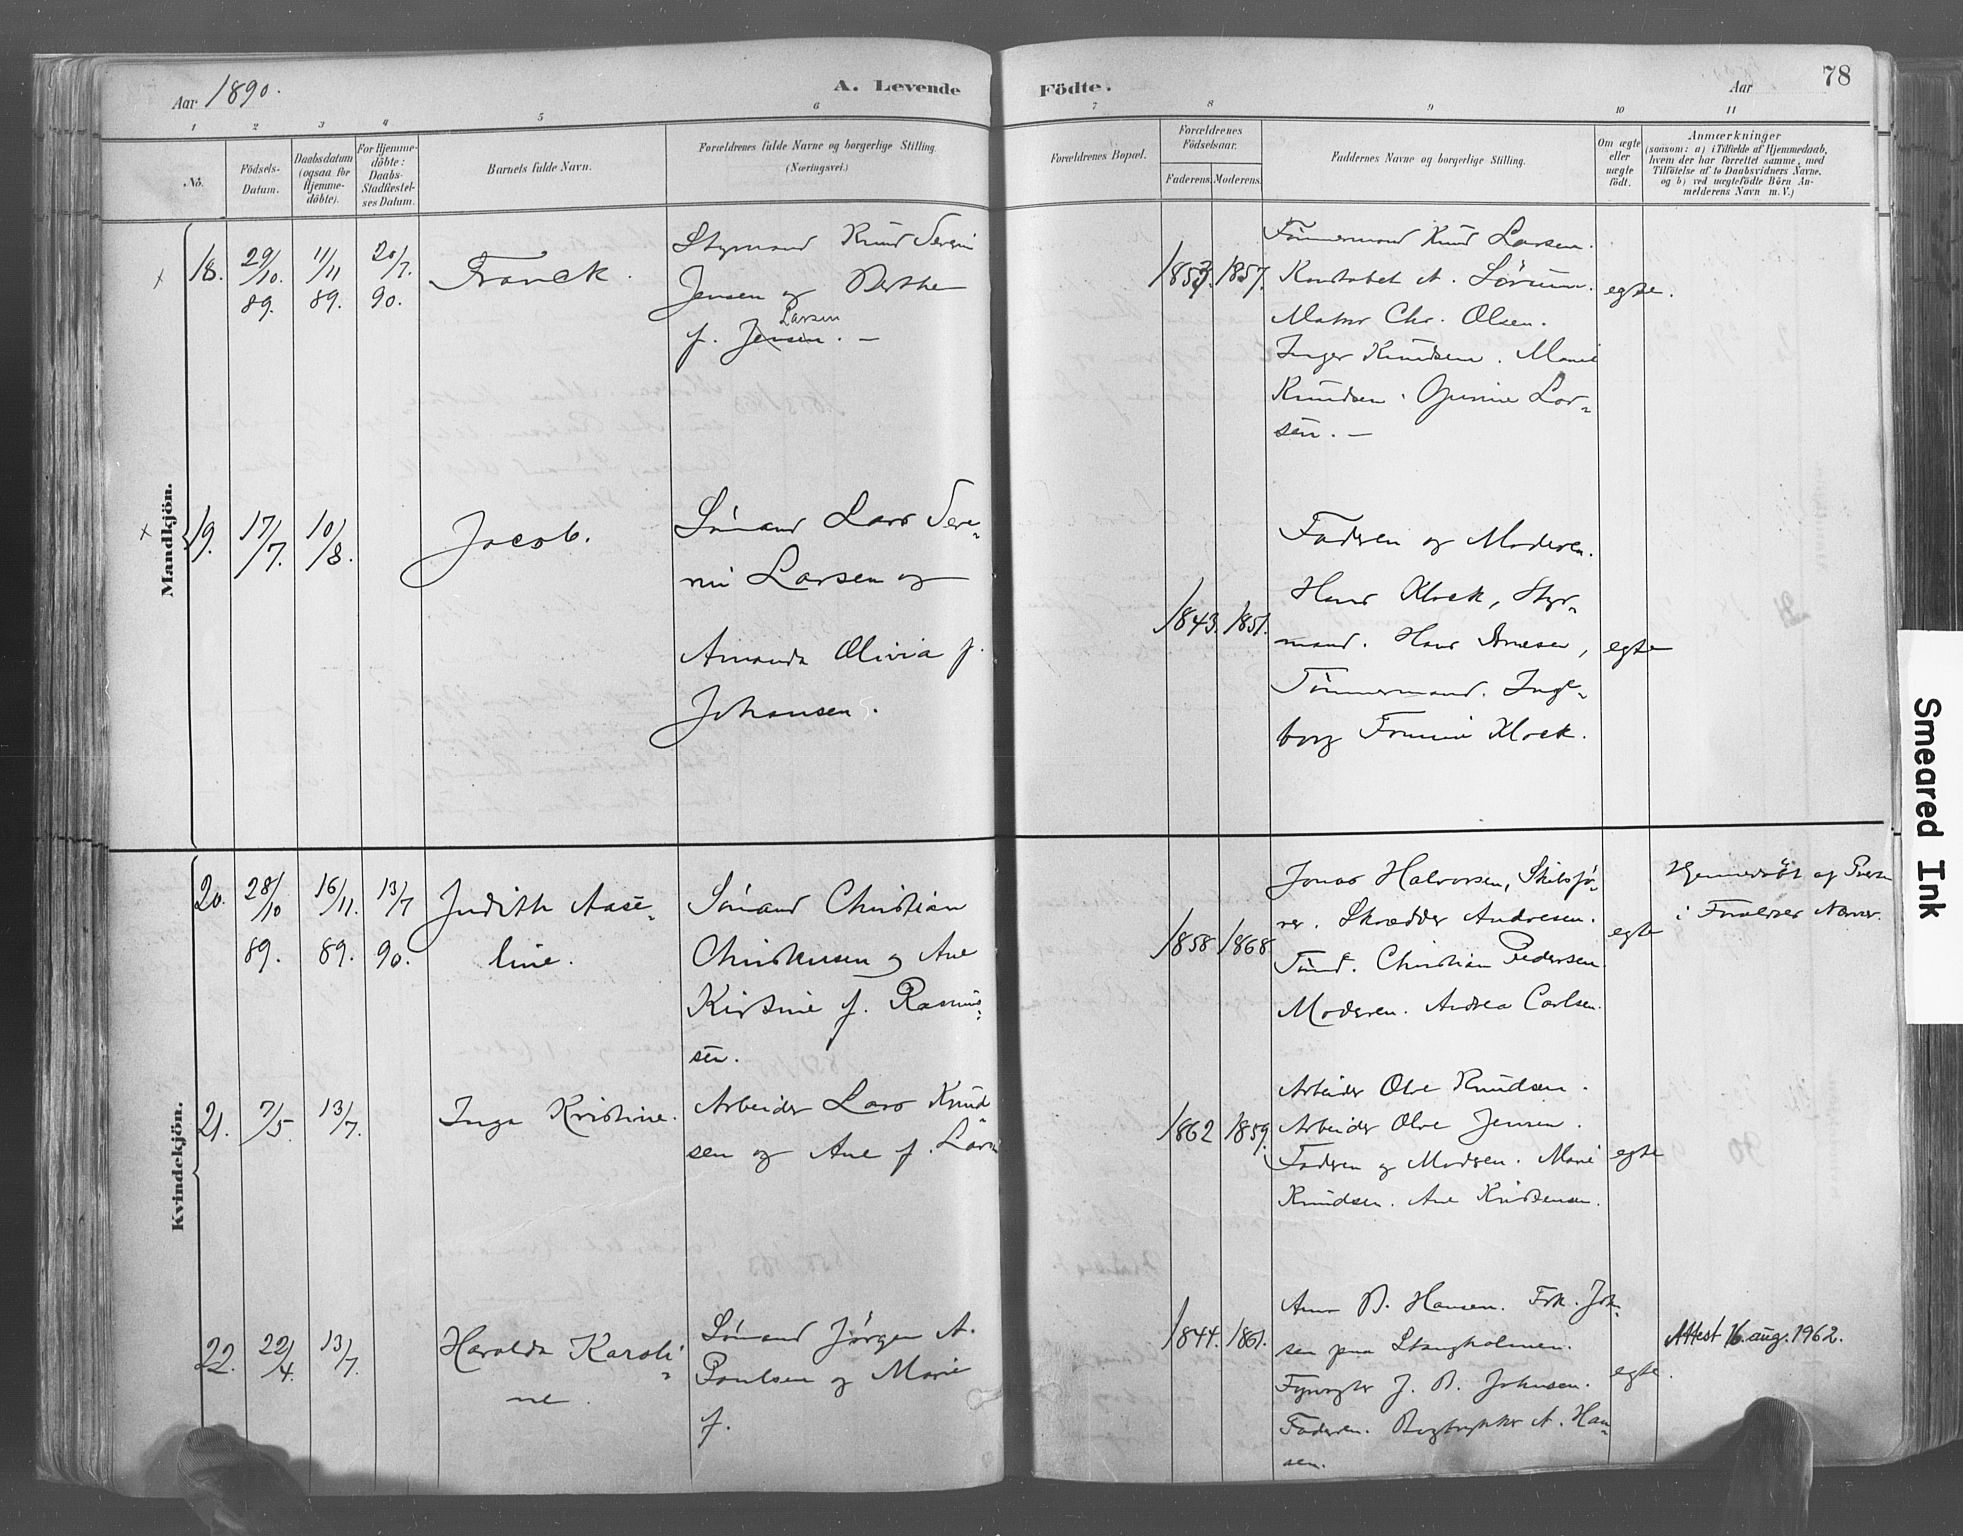 Aar 1890.
A. Levende Födte.
Aar
78
1 2 3 4 5 6 7 8 9 10 11
No.
Födsels-
Datum.
Daabsdatum
(ogsaa for
Hjemme-
döbte).
For Hjemme-
döbte:
Daabs-
Stadfæstel-
ses Datum.
Barnets fulde Navn.
Forældrenes fulde Navne og borgerlige Stilling
(Næringsvei.)
Forældrenes Bopæl.
Forældrenes
Födselsaar.
Faderens.
Moderens.
Faddernes Navne og borgerlige Stilling.
Om ægte
eller
uægte
födt.
Anmærkninger
(saasom: a) i Tilfælde af Hjemmedaab,
hvem der har forrettet samme, med
Tilföielse af to Daabsvidners Navne,
og b) ved uægtefödte Börn An-
melderens Navn m. V.)
Mandkjön.
18. 29/10. 89. 11/11 89. 20/7. 90.
Franck.
Styrmand Knud Severin
Jensen og Berthe
f. Jensen. —
Larsen
1853. 1857.
Tömmermand Knud Larsen.
Konstabel A. Sörum.
Matros Chr. Olsen.
Inger Knudsen. Marie
Knudsen. Gurine Lar-
sen. —
egte.
19. 17/7. 10/8.
Jacob.
Sömand Lars Seve-
rin Larsen og
Amanda Olivia f.
Johansen.
1843. 1851.
Faderen og Moderen.
Hans Klock, Styr-
mand. Hans Arnesen,
Tömmermand. Inge-
borg Klock.
egte
Kvindekjön.
20. 28/10 89. 16/11. 89. 13/7 90.
Judith Aase-
line.
Sömand Christian
Christensen og Ane
Kirstine f. Rasmus-
sen.
1858 1868
Jonas Halvorsen, Skibsfö-
rer. Skrædder Andresen.
Christian Pedersen.
Moderen. Andrea Carlsen.
egte
Hjemmedöbt af
i Forældres
21. 7/5. 13/7.
Inga Kristine.
Arbeider Lars Knud-
sen og Ane f.
1862 1859.
Arbeider Ole Knudsen.
Arbeider Ole Jensen.
Faderen og Moderen. Marie
Knudsen. Ane Kristensen.
egte
22. 22/4. 13/7.
Haralda Karoli-
ne.
Sömand Jörgen A.
Poulsen og Marie
f.
1844. 1861.
Anna B. Hansen. Frk. Joh-
sen paa Stangholmen.
Fyrvogter J. B. Johnsen.
Faderen. Bogtrykker A. Han-
sen.
egte.
Attest 16. aug. 1962.
Smeared Ink